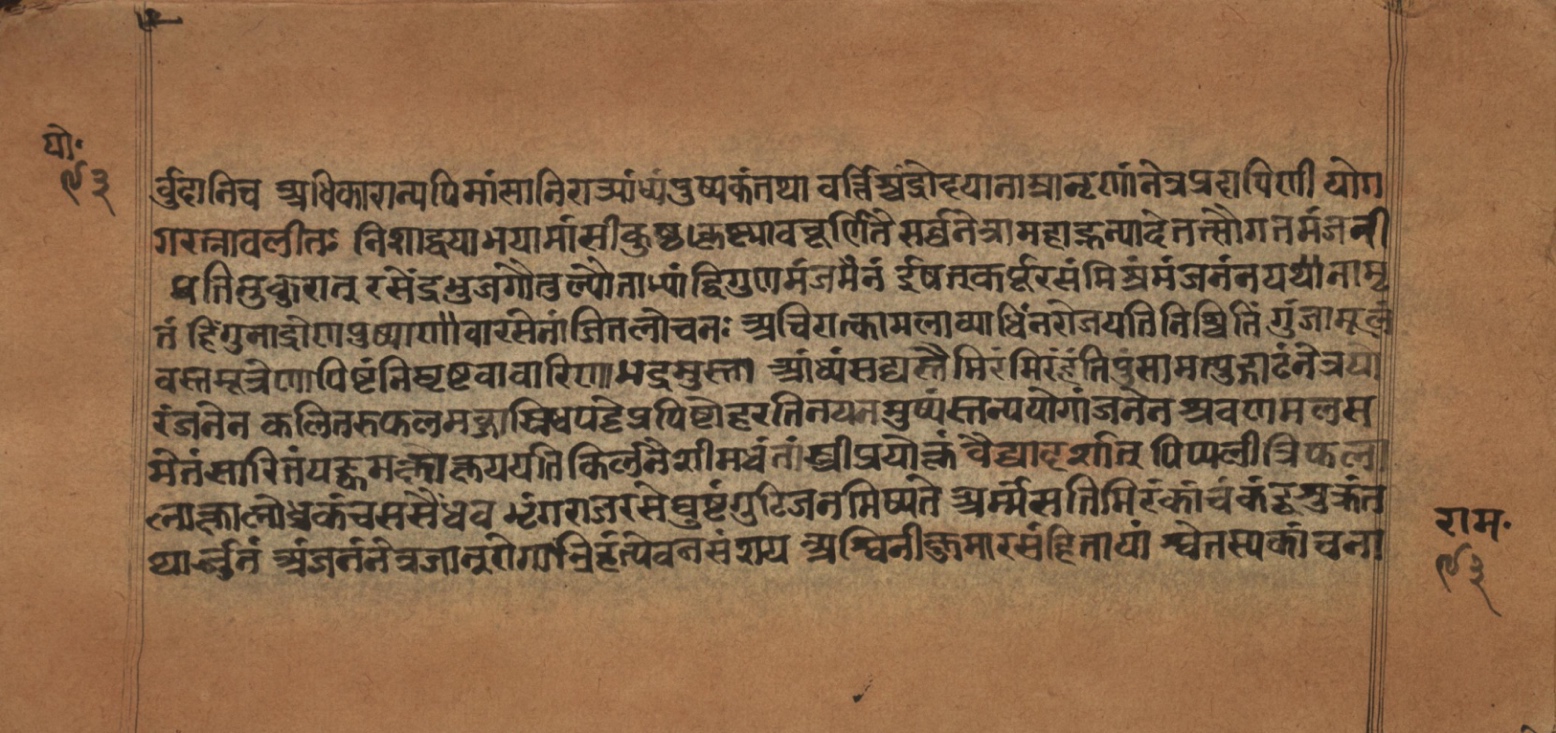 यो॰
९३
र्वुदानिच अधिकारान्यपिमांसानिराआंध्यंपुष्पकंतथा वर्त्तिश्चंद्रोदयानाम्नानृणांनेत्रप्रदायिणी योग
गरत्नावलीतः निशाद्वयाभयामांसीकुष्ठकृष्णावचूर्णितै सर्वनेत्रामहाह्नन्यादेतत्सौगतमंजनी
रसेंद्रभुजगौतुल्यौताभ्यांद्विगुणमंजमैनं ईषत्कर्पूरसंमिश्रंमंजनंनयथानामृ
तं हिंगुनाद्रोणपुष्पाणांवारसेनांजितलोचनः अचिरात्कामलाव्याधिंनरोजयतिनिश्चितिं गुंजामूलं
वस्तमूत्रेणापिष्टंनिघृष्टवावारिणाभद्रमुस्ता आंध्यंसद्यस्तैमिरंमिरंहंतिपुंसामत्पुद्गाढंनेत्रयो
रंजनेन प्रपिष्टोहरतिनयनपुष्पंस्तन्ययोगांजनेन श्रवणमलस
मेतं वैद्यादर्शात् पिप्पलीत्रिफला
लाक्षालोध्रकंचससैंधव भृंगराजरसेघुष्टंगुटिजनमिष्यते अर्म्मसतिमिरंकांचंकंडूशुक्रंत
थार्ज्जुनं अंजनंनेत्रजानुरोगान्निर्हंत्येवनसंशय अश्विनीकुमारसंहितायां श्वेतस्यकांचना
राम॰
९३